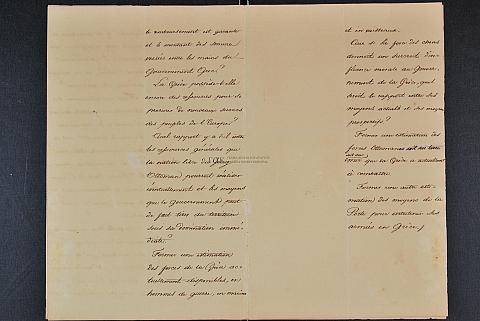 le remboursement est garantie
et le montant des sommes
versées entre les mains du
Gouvernement Grec?
La Grèce possède-t-elle
encore des ressources pour se
procurer de nouveaux secours
des peuples de l'Europe?
Quel rapport y a t-il entre
les ressources générales que
la nation libre des
Ottoman) pourrait réaliser
éventuellement et les moyens
que le Gouvernement peut
de fait tirer du territoire
sous sa domination immé-
diate?
Former une estimation
des forces de la Grèce ac-
tuellement disponibles, en
hommes de guerre, en marins
et en vaisseaux.
Que si la force des choses
donnait un surcroit d'in-
fluence morale au Gouver-
nement de la Grèce, quel
serait le rapport entre ses
moyens actuels et ses moyens
prospectifs?
Former une estimation des
forces Ottomanes soit sur terre
soit sur
mer que la Grèce a actuellement
à combattre.
Former une autre esti-
mation des moyens de la
Porte pour entretenir des
armées en Grèce,